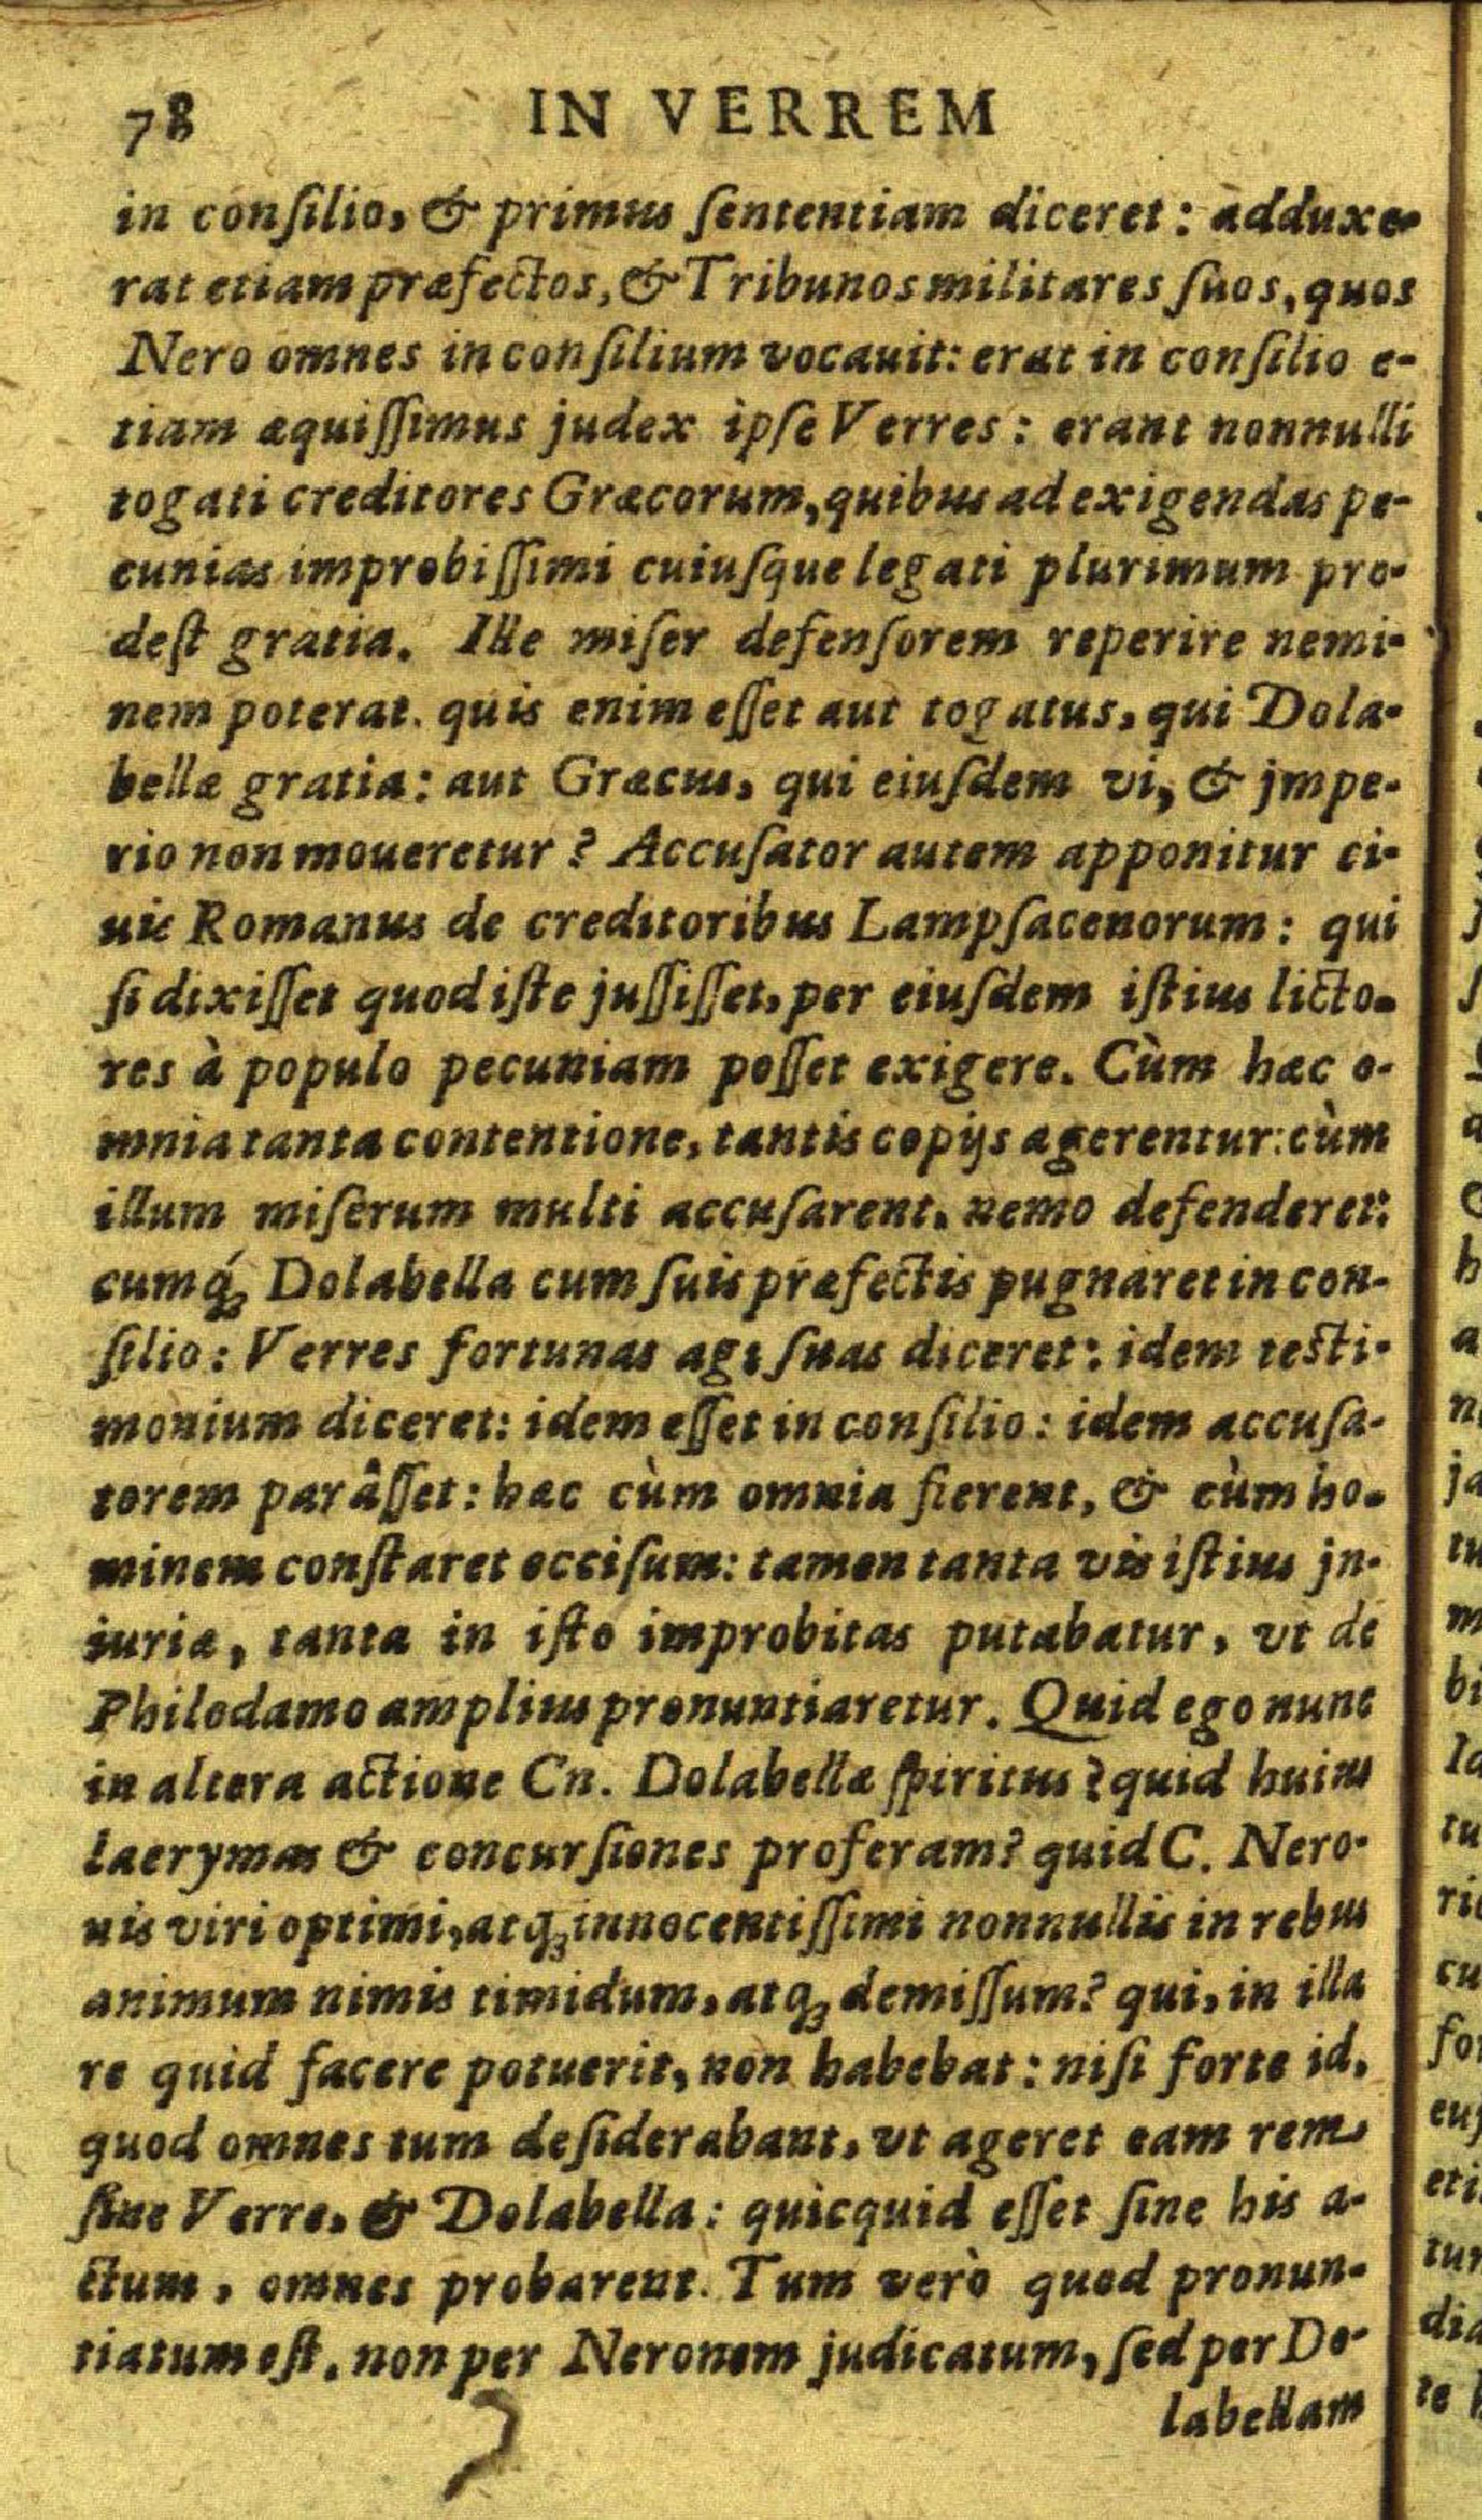 78 IN VERREM
in conſilio, & primus ſententiam diceret: adduxe-
rat etiam præfectos, & Tribunos militares ſuos, quos
Nero omnes in conſilium vocauit: erat in conſilio e-
tiam æquiſſimus judex ipſe Verres: erant nonnulli
togati creditores Græcorum, quibus ad exigendas pe-
cunias improbiſſimi cuiuſque legati plurimum pro-
deſt gratia. Ille miſer defenſorem reperire nemi-
nem poterat. quis enim eſſet aut togatus, qui Dola-
bellæ gratia: aut Græcus, qui eiuſdem vi, & jmpe-
rio non moueretur? Accuſator autem apponitur ci-
uis Romanus de creditoribus Lampſacenorum: qui
ſi dixiſſet quod iſte juſſiſſet, per eiuſdem iſtius licto-
res à populo pecuniam poſſet exigere. Cùm hæc o-
mnia tanta contentione, tantis copijs agerentur: cùm
illum miſerum multi accuſarent, nemo defenderet:
cumq́ꝫ Dolabella cum ſuis præfectis pugnaret in con-
ſilio: Verres fortunas agi ſuas diceret: idem teſti-
monium diceret: idem eſſet in conſilio: idem accuſa-
torem parâſſet: hæc cùm omnia fierent, & cùm ho-
minem conſtaret occiſum: tamen tanta vis iſtius jn-
iuriæ, tanta in iſto improbitas putabatur, vt de
Philodamo amplius pronuntiaretur. Quid ego nunc
in altera actione Cn. Dolabellæ ſpiritus? quid huius
lacrymas & concurſiones proferam? quid C. Nero-
nis viri optimi, atqꝫ innocentiſſimi nonnullis in rebus
animum nimis timidum, atqꝫ demiſſum? qui, in illa
re quid facere potuerit, non habebat: niſi forte id,
quod omnes tum deſiderabant, vt ageret eam rem
ſine Verre, & Dolabella: quicquid eſſet ſine his a-
ctum, omnes probarent. Tum verò quod pronun-
tiatum eſt, non per Neronem judicatum, ſed per Do-
labellam